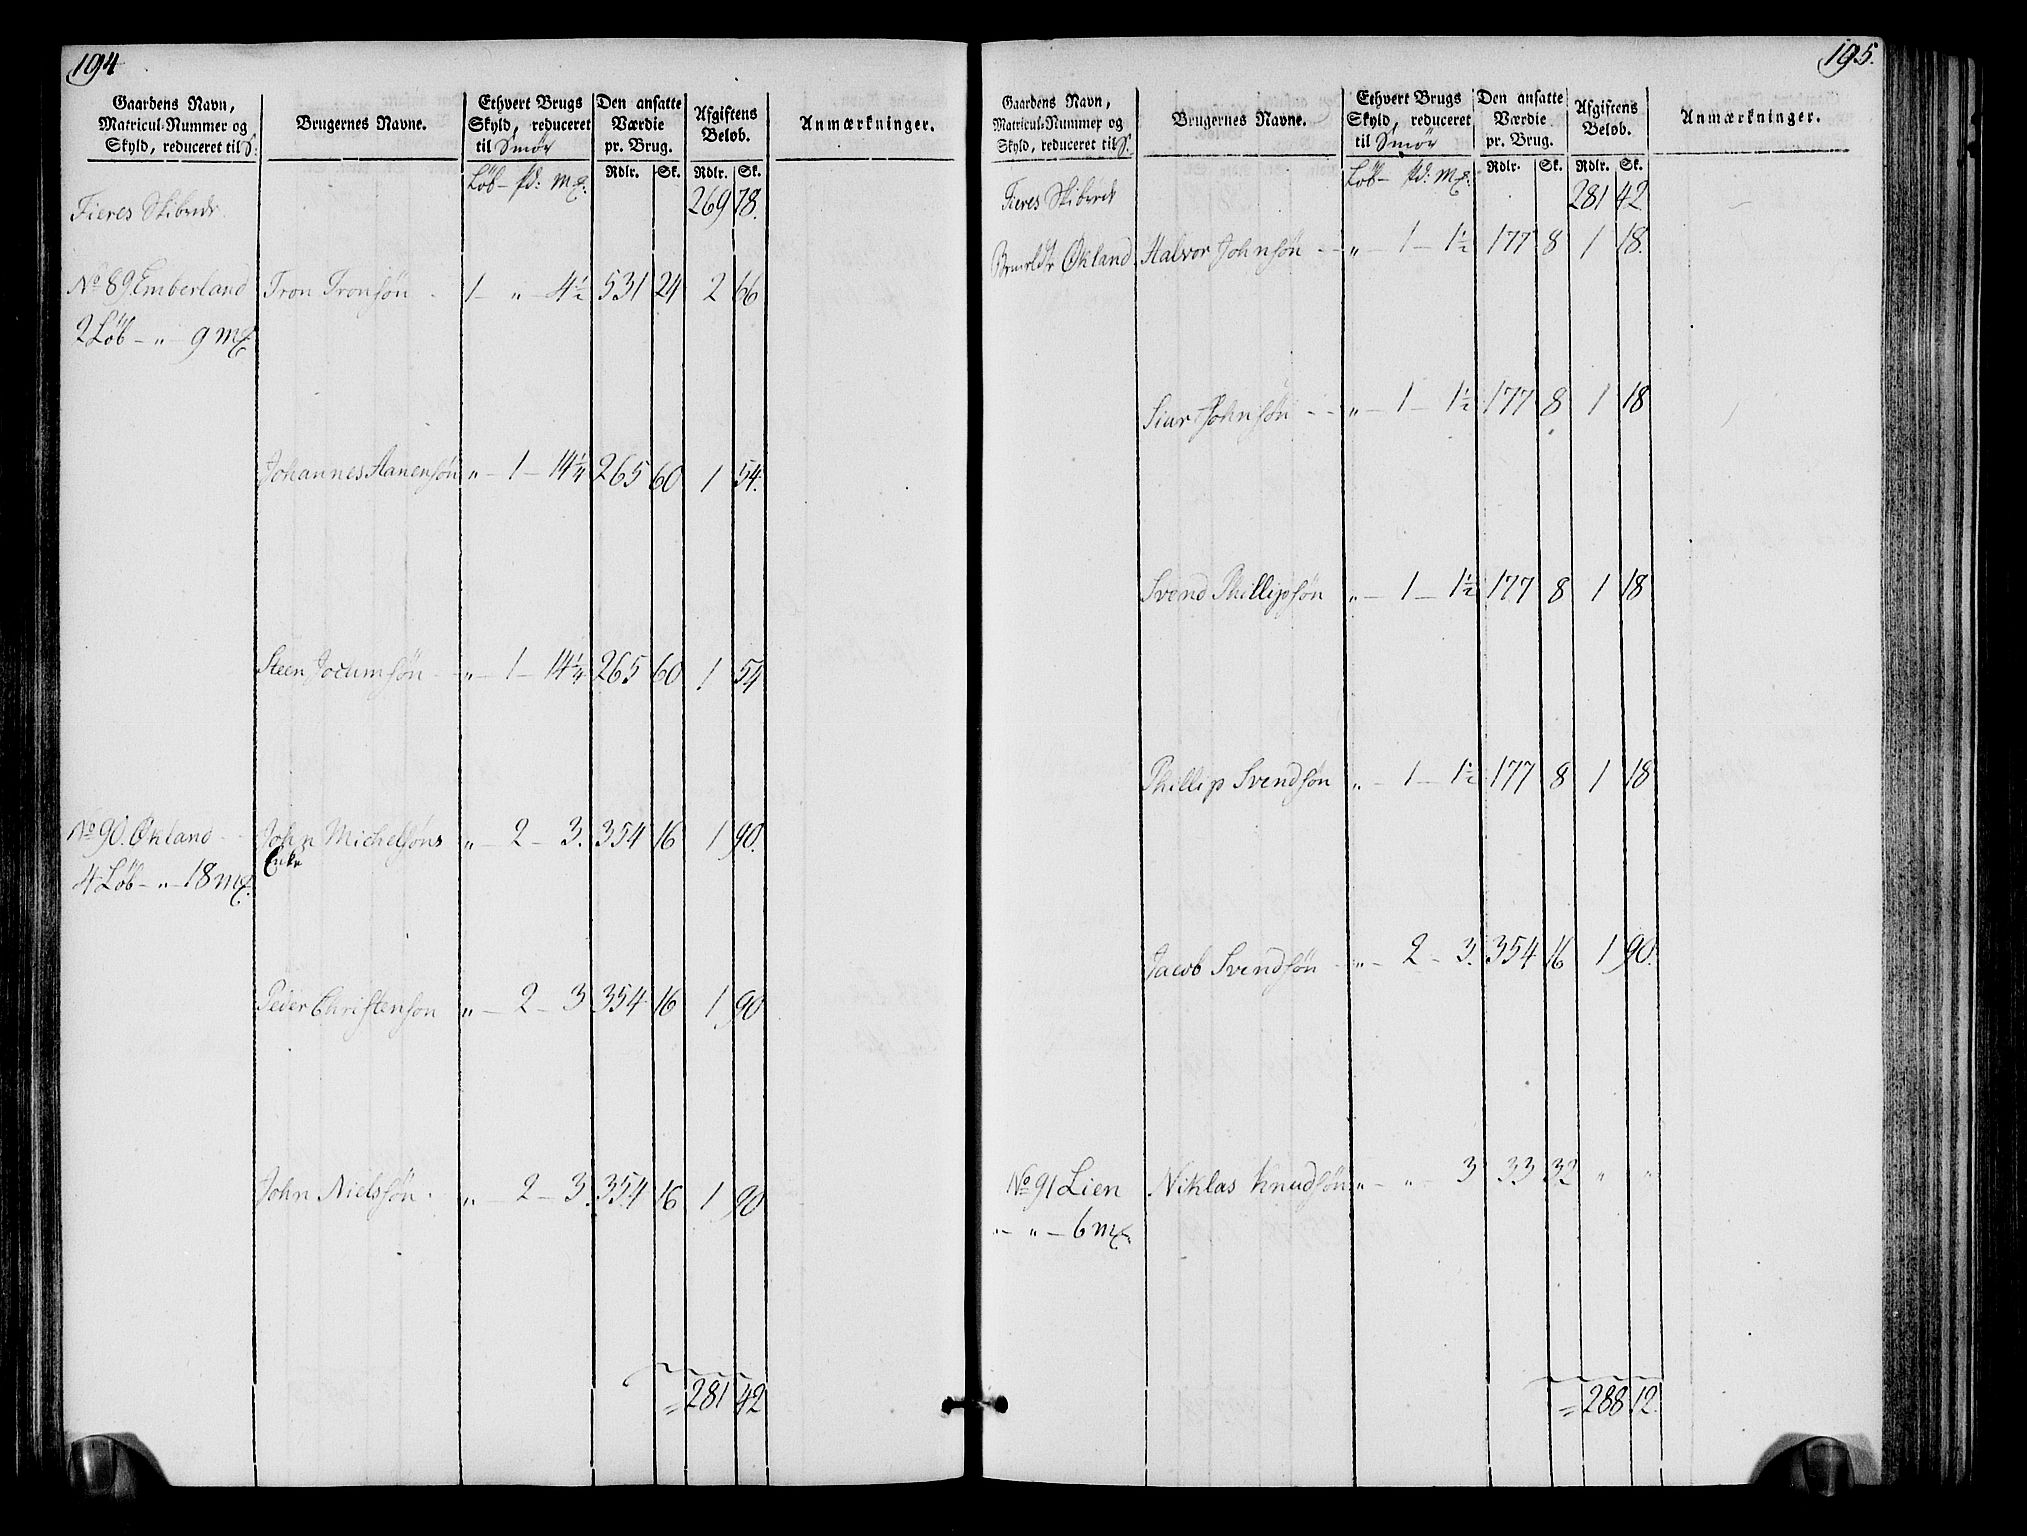 194
Gaardens Navn, Matricul-Nummer og Skyld, reduceret til S:
Brugernes Navne.
Ethvert Brugs Skyld, reduceret til Smör
Den ansatte Værdie pr. Brug.
Afgiftens Beløb.
Anmærkninger.
Löb – pd: Mgz: Rdlr. Sk. Rdlr. Sk.
Fieres Skibrede 269 78.
No 89 Emberland Tron Tronsøn 1 – „ – 4½ 531 24 2 66
2 Löb – „ – 9 mgz.
Johannes Aanensøn „ – 1 – 14¼ 265 60 1 54.
Steen Jocumsøn „ – 1 – 14¼ 265 60 1 54
No 90. Økland John Michelsøns „ – 2 – 3. 354 16 1 90.
Enke
4 Löb – „ – 18 mgz.
Peder Christensøn „ – 2 – 3 354 16 1 90
John Nielssøn „ 2 – 3. 354 16 1 90
= 281 42
195.
Gaardens Navn, Matricul-Nummer og Skyld, reduceret til S.
Brugernes Navne.
Ethvert Brugs Skyld, reduceret til Smör
Den ansatte Værdie pr. Brug.
Afgiftens Beløb.
Anmærkninger.
Löb – pd: Mgz: Rdlr. Sk. Rdlr. Sk.
Fieres Skibrede 281 42
Økland Halvor Johnsøn „ – 1 – 1½ 177 8 1 18.
Siur Johnsøn „ – 1 – 1½ 177 8 1 18
Svend Phillipsøn „ – 1 – 1½ 177 8 1 18
Phillip Svendsøn „ – 1 – 1½ 177 8 1 18
Jacob Svendsøn „ – 2 – 3. 354 16 1 90.
No 91 Lien Niklas Knudsøn „ – „ – 3 33 32 „ „
„ – „ – 6 mgz.
= 288 12.